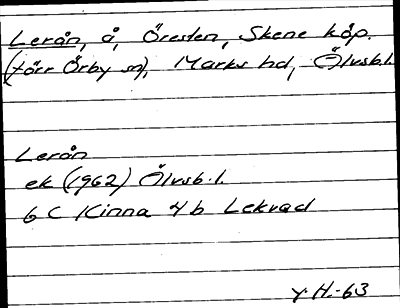 Lerån, å, Öresten, Skene köp.
(förr Örby sn), Marks hd, Älvsb.l.
Lerån
ek (1962) Älvsb.l.
6 C Kinna 4 b Lekvad
Y.H.-63